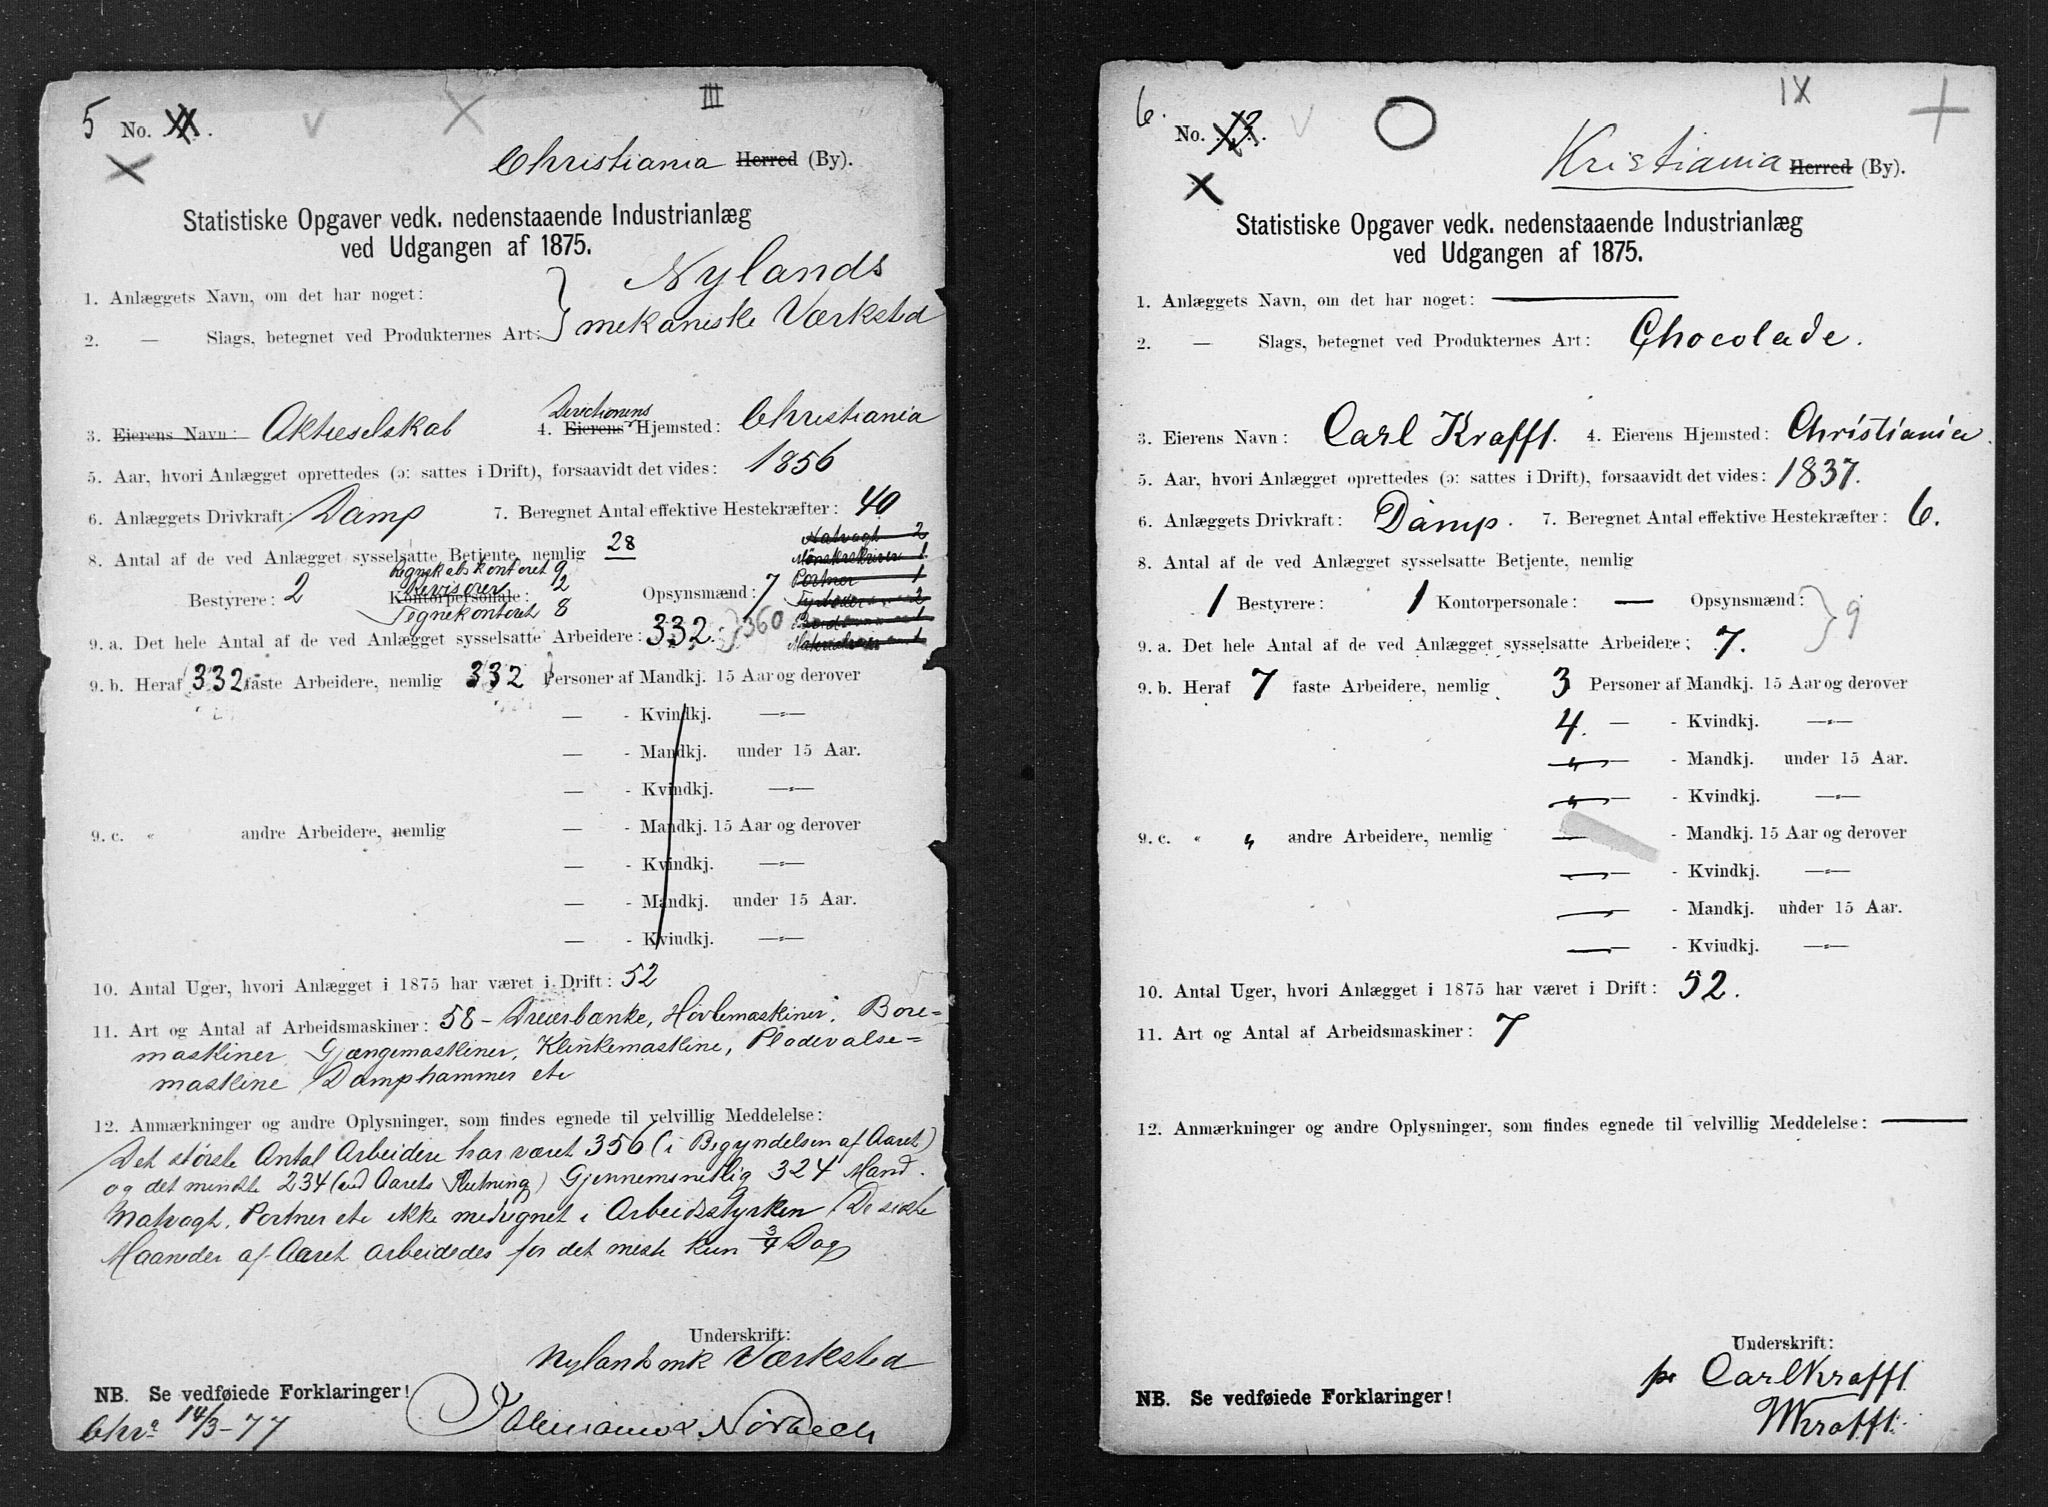 5 No.
III
Christiania Herred (By).
Statistiske Opgaver vedk. nedenstaaende Industrianlæg
ved Udgangen af 1875.
1. Anlæggets Navn, om det har noget: Nylands
2. — Slags, betegnet ved Produkternes Art: mekaniske Værksted
Directionens
3. Eierens Navn: Aktieselskab 4. Eierens Hjemsted: Christiania
5. Aar, hvori Anlægget oprettedes (ɔ: sattes i Drift), forsaavidt det vides: 1856
6. Anlæggets Drivkraft: Damp 7. Beregnet Antal effektive Hestekræfter: 40
8. Antal af de ved Anlægget sysselsatte Betjente, nemlig 28
Natvagt 2
1
Regnskabskontoret 9
Portner 1
Revisorer 2
Bestyrere: 2 Kontorpersonale: Opsynsmænd: 7
Tegnekontoret 8
9. a. Det hele Antal af de ved Anlægget sysselsatte Arbeidere: 332. 360
9. b. Heraf 332 faste Arbeidere, nemlig 332 Personer af Mandkj. 15 Aar og derover
— - Kvindkj. —„—
— - Mandkj. under 15 Aar.
— - Kvindkj. —„—
9. c. „ andre Arbeidere, nemlig — - Mandkj. 15 Aar og derover
— - Kvindkj. —„—
— - Mandkj. under 15 Aar.
— - Kvindkj. —„—
10. Antal Uger, hvori Anlægget i 1875 har været i Drift: 52
11. Art og Antal af Arbeidsmaskiner: 58 - Dreierbænke, Høvlemaskiner, Bore=
maskiner, Gjængemaskiner, Klinkemaskine, Pladevalse=
maskine, Damphammer etc
12. Anmærkninger og andre Oplysninger, som findes egnede til velvillig Meddelelse:
Det største Antal Arbeidere har været 356 (i Begyndelsen af Aaret)
og det mindste 234 (ved Aarets Slutning) Gjennemsnitlig 324 Mand.
Natvagt, Portner etc ikke medregnet i Arbeidsstyrken. De sidste
Maaneder af Aaret arbeidedes for det meste kun 3/4 Dag
Underskrift:
Nylands mk Værksted
NB. Se vedføiede Forklaringer!
Chra 14/3-77
6. No.
IX
Kristiania Herred (By).
Statistiske Opgaver vedk. nedenstaaende Industrianlæg
ved Udgangen af 1875.
1. Anlæggets Navn, om det har noget: —
2. — Slags, betegnet ved Produkternes Art: Chocolade.
3. Eierens Navn: Carl Krafft. 4. Eierens Hjemsted: Christiania.
5. Aar, hvori Anlægget oprettedes (ɔ: sattes i Drift), forsaavidt det vides: 1837.
6. Anlæggets Drivkraft: Damp. 7. Beregnet Antal effektive Hestekræfter: 6.
8. Antal af de ved Anlægget sysselsatte Betjente, nemlig
1 Bestyrere: 1 Kontorpersonale: — Opsynsmænd: 9
9. a. Det hele Antal af de ved Anlægget sysselsatte Arbeidere: 7.
9. b. Heraf 7 faste Arbeidere, nemlig 3 Personer af Mandkj. 15 Aar og derover
4. — - Kvindkj. —„—
„ — - Mandkj. under 15 Aar.
„ — - Kvindkj. —„—
9. c. „ „ andre Arbeidere, nemlig — - Mandkj. 15 Aar og derover
— - Kvindkj. —„—
— - Mandkj. under 15 Aar.
— - Kvindkj. —„—
10. Antal Uger, hvori Anlægget i 1875 har været i Drift: 52.
11. Art og Antal af Arbeidsmaskiner: 7
12. Anmærkninger og andre Oplysninger, som findes egnede til velvillig Meddelelse: —
Underskrift:
pr Carl Krafft
NB. Se vedføiede Forklaringer!
WKrafft.